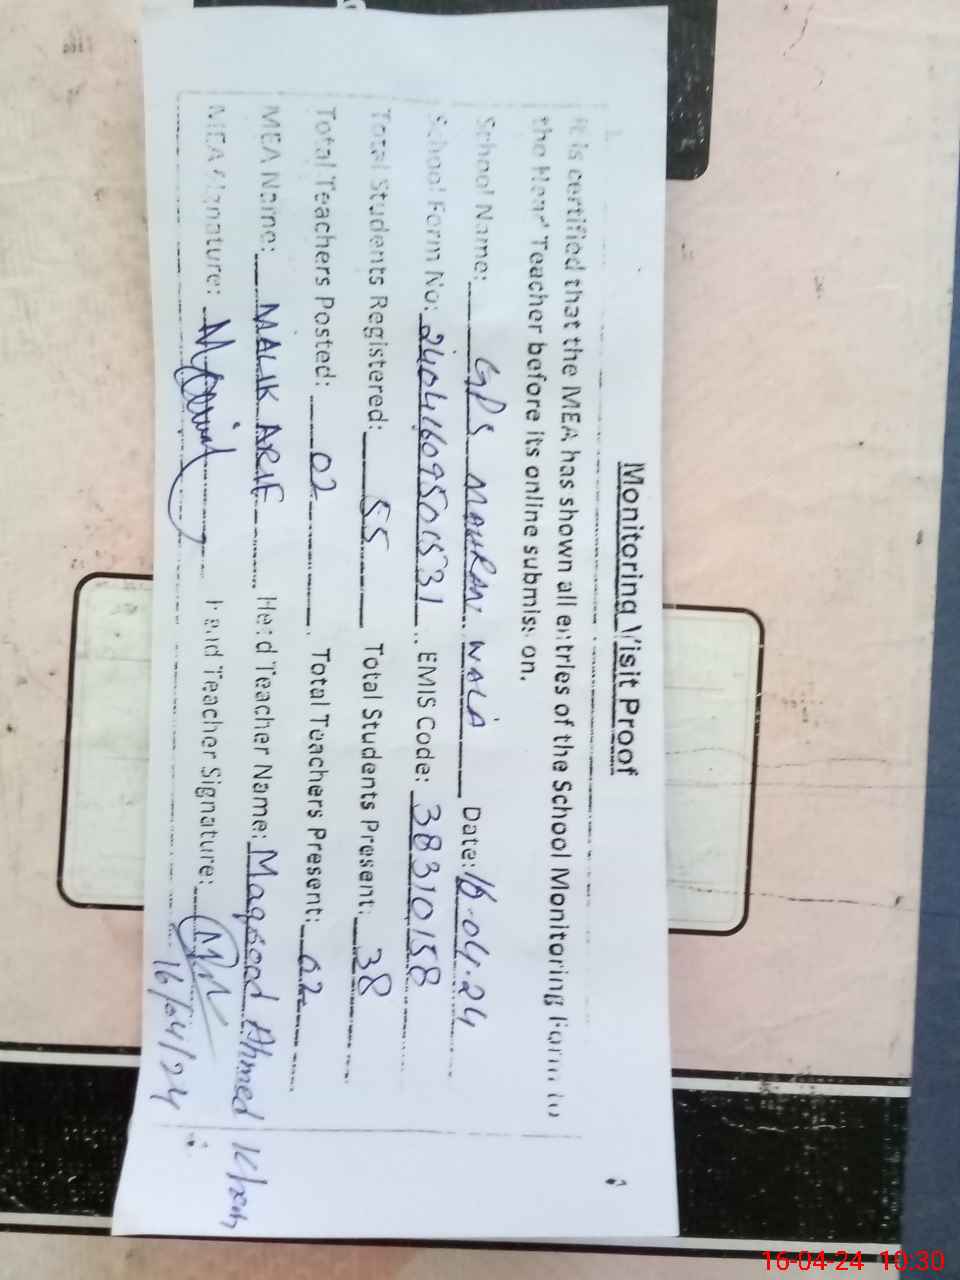 Monitoring Visit Proof
It is certified that the MEA has shown all entries of the School Monitoring Form to
the Head Teacher before its online submission.
School Name: GPS MAHRAN WALA Date: 16.04.24
School Form No: 24041609501531 EMIS Code: 38310158
Total Students Registered: 55 Total Students Present: 38
Total Teachers Posted: 02 Total Teachers Present: 02
MEA Name: MALIK ARIF Head Teacher Name: Maqsood Ahmed Khan
MEA Signature: Head Teacher Signature:
16/04/24
16-04-24 10:30